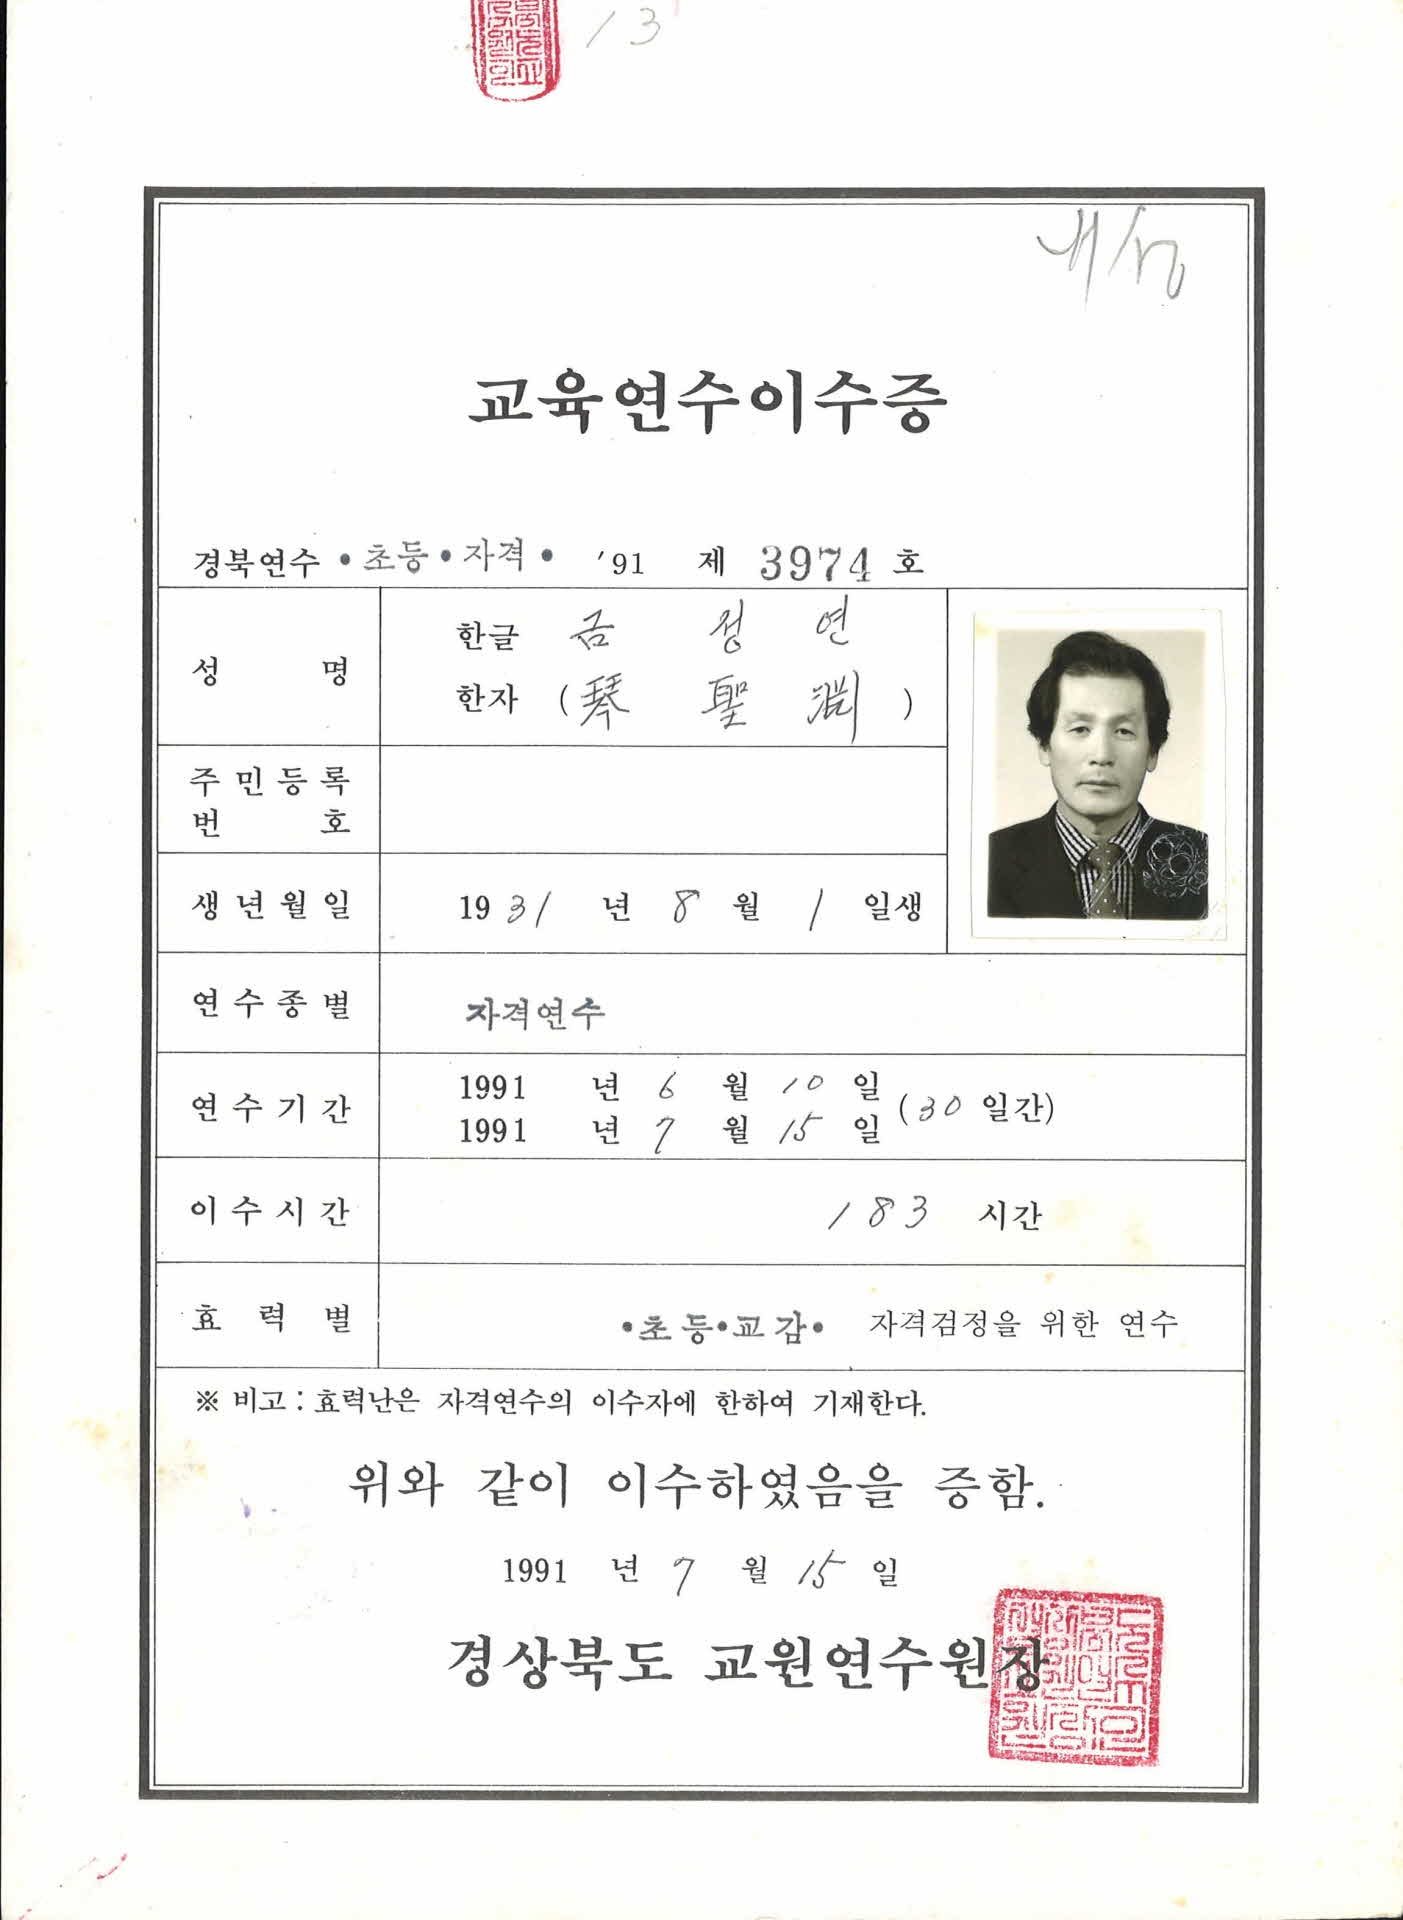 13
교육연수이수증
경북연수 • 초등 • 자격 • '91 제 3974 호
성 명
한글 금 정 연
한자 (琴 聖 淵)
주민등록
번 호
생년월일 1931 년 8 월 1 일생
연수종별 자격연수
연수기간
1991 년 6 월 10 일
1991 년 7 월 15 일 (30 일간)
이수시간 183 시간
효력별 •초등•교감• 자격검정을 위한 연수
※ 비고 : 효력난은 자격연수의 이수자에 한하여 기재한다.
위와 같이 이수하였음을 증함.
1991 년 7 월 15 일
경상북도 교원연수원장